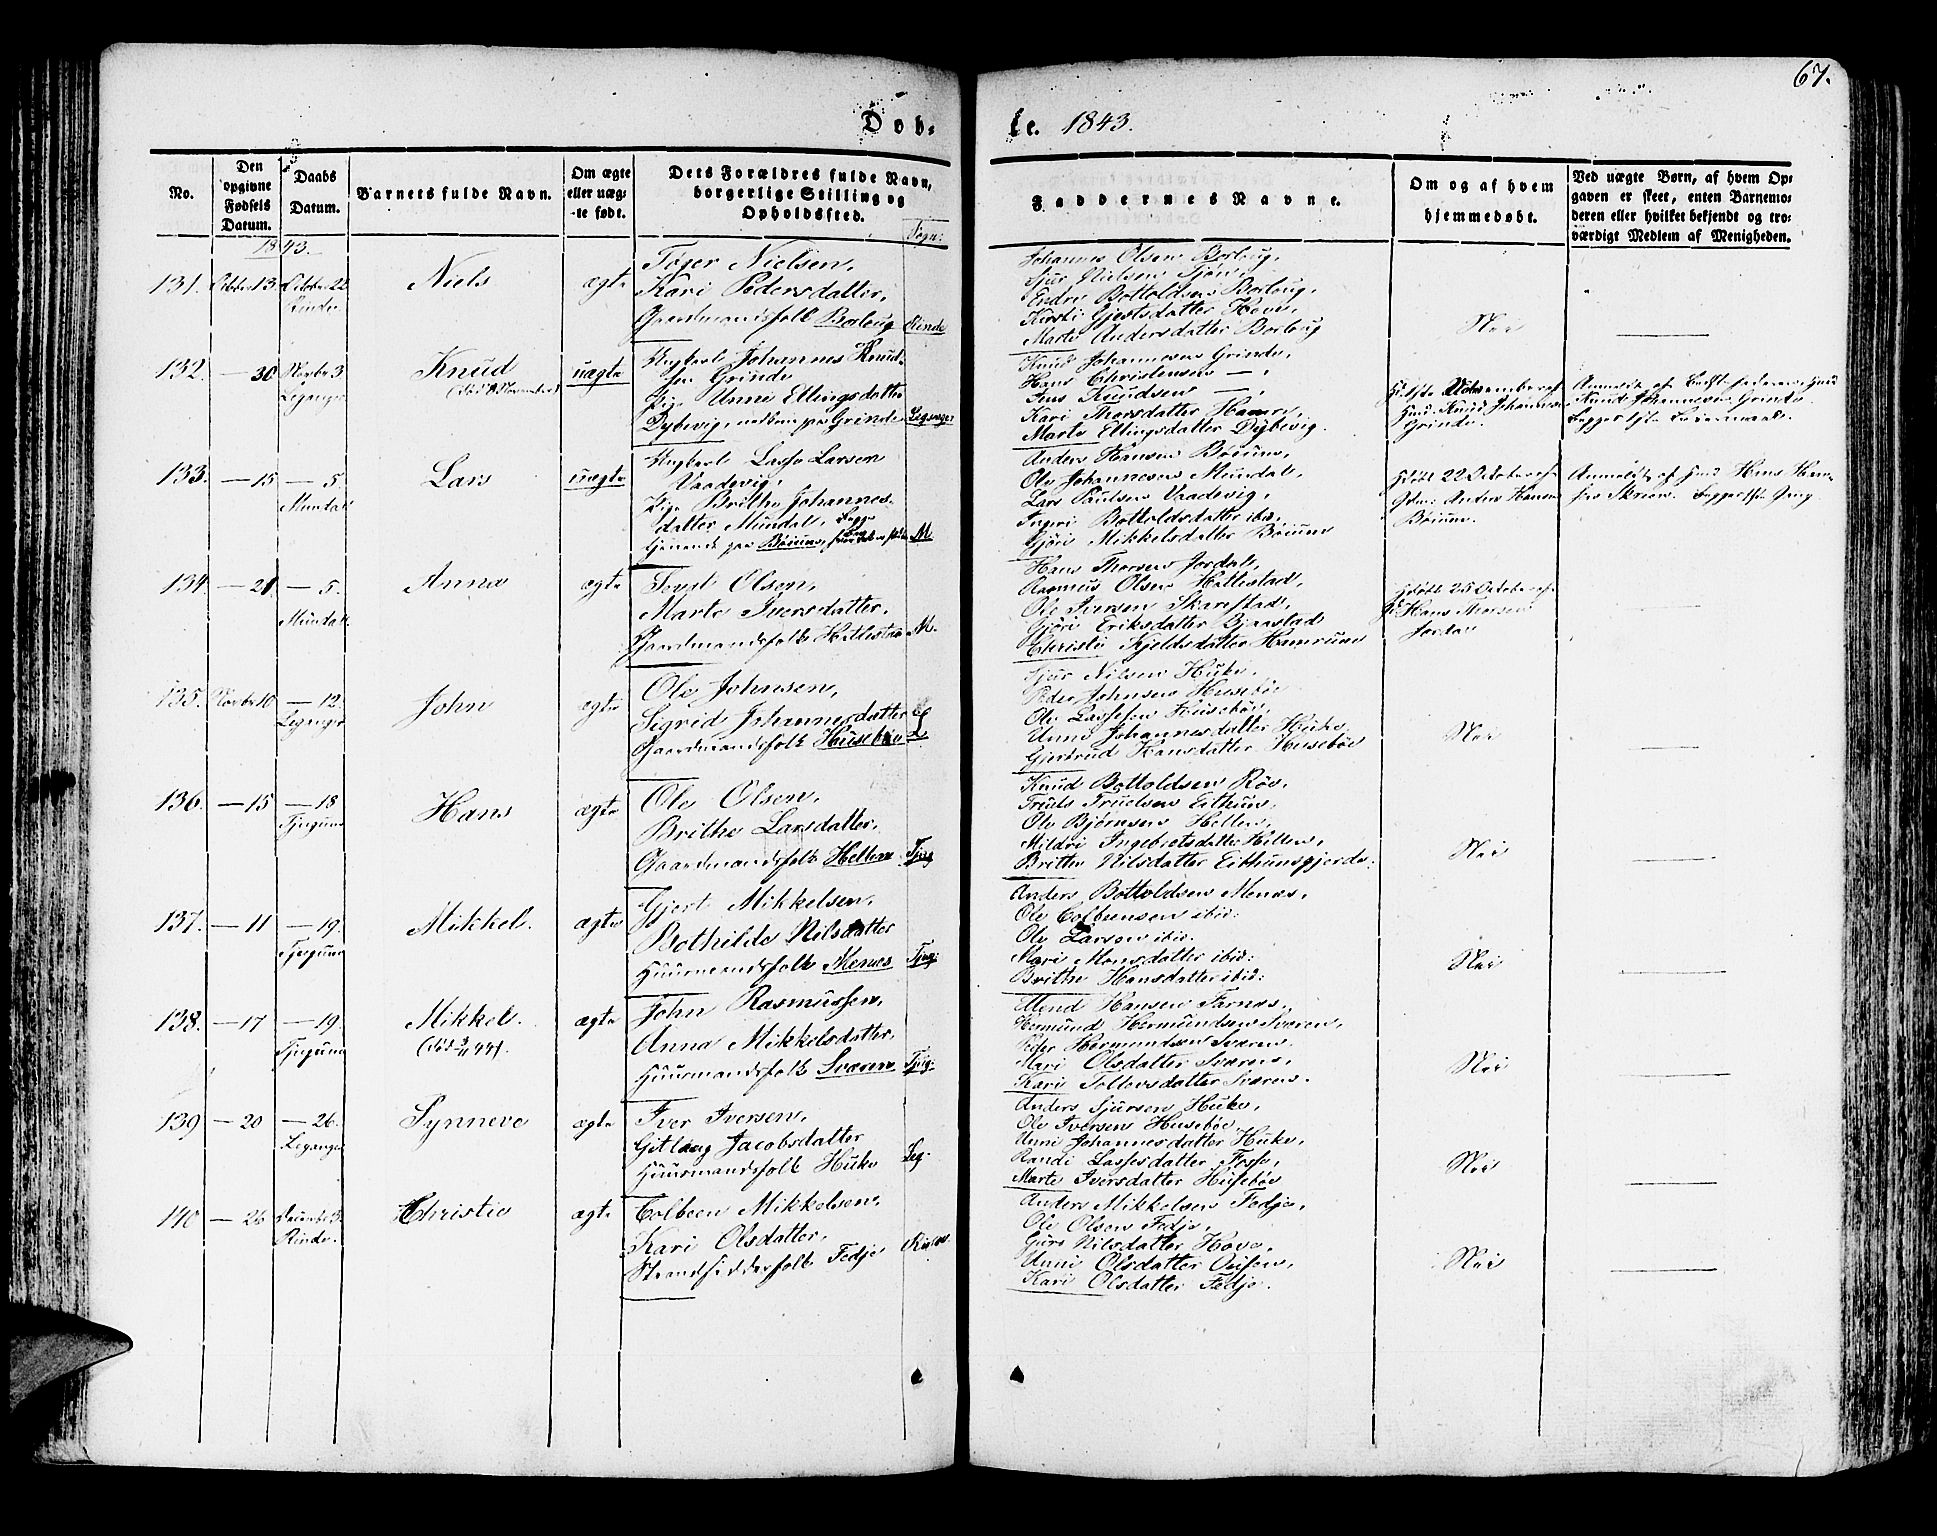 67.
Døb-
te. 1843.
No.
Den opgivne Fødsels Datum.
Daabs Datum.
Barnets fulde Navn.
Om ægte eller uæg-te født.
Dets Forældres fulde Navn, borgerlige Stilling og Opholdssted.
Sogn:
Faddernes Navne.
Om og af hvem hjemmedøbt.
Ved uægte Børn, af hvem Op-
gaven er skeet, enten Barnemo-
deren eller hvilket bekjendt og tro-
værdigt Medlem af Menigheden.
1843.
131. Octbr 13 Octbr 22 Rinde
Niels
ægte
Tøger Nielsen,
Kari Pedersdatter,
Gaardmandsfolk Borlaug Rinde
Johannes Olsen Borlaug,
Sjur Nielsen
Endre Bottoldsen Borlaug,
Kirsti Gjertsdatter Hove,
Marte Andersdatter Borlaug
Nei
132. — 30 Novbr 3 Leganger
Knud
(død November)
uægte
Ungkarl Johannes Knud-
sen Grinde
Pige Unni Ellingsdatter
Dybevig, paa Grinde Leganger
Knud Johannesen Grinde,
Hans Christensen — ,
Jens Knudsen — ,
Kari Thorsdatter Hamre,
Marte Ellingsdatter Dybevig.
November af
Knud Johannesen
Grinde.
Anmeldt af
Knud Johannesen Grinde.
Begges 1ste Leiermaal.
133. — 15 — 5. Mundal
Lars
uægte
Ungkarl Lasse Larsen
Vaadevig,
Pige Brithe Johannes-
datter Mundal, begge
tjenende paa Bøium, M
Anders Hansen Bøium,
Ole Johannesen Mundal,
Lars Paulsen Vaadevig,
Ingeri Bottoldsdatter ibid,
Gjøri Mikkelsdatter Bøium
Hdøbt 22 October af
Anders Hansen
Bøium.
Anmeldt af Hans
134 — 21 — 5. Mundal
Anna
ægte
Olsen,
Marte Iversdatter,
Gaardmandsfolk M.
Hans Thorsen Jordal,
Rasmus Olsen
Ole Iversen Skarestad,
Gjøri Eriksdatter Bjaastad
Christi Kjeldsdatter
Hdøbt 25 October af
Hans Thorsen
Jordal
135. Novbr 10 — 12. Leganger
John
ægte
Ole Johnsen,
Sigrid Johannesdatter
Gaardmandsfolk Husebøe L
Sjur Nilsen Huke,
Peder Johnsen Husebøe
Ole Lassesen Husebøe,
Unni Johannesdatter Huke,
Gjertrud Hansdatter Husebøe
Nei
136. — 15 — 18 Tjugum
Hans
ægte
Ole Olsen,
Brithe Larsdatter,
Gaardmandsfolk Hellene Tjug
Knud Bottoldsen Røe,
Truls Truelsen Eithun,
Ole Bjørnsen Hellen,
Mildri Ingebretsdatter Hellen,
Brithe Nilsdatter Eithunsgjerde.
Nei
137. — 11 — 19. Tjugum
Mikkel.
ægte
Gjert Mikkelsen,
Bothilde Nilsdatter
Huusmandsfolk Menes Tjug:
Anders Bottoldsen Menes,
Ole Colbensen ibid:
Ole Larsen ibid.
Mari Monsdatter ibid:
Brithe Hansdatter ibid:
Nei
138. — 17 — 19. Tjugum
Mikkel.
(død 44).
ægte
John Rasmussen,
Anna Mikkelsdatter,
Huusmandsfolk Sværen Tjug:
Erlend Hansen Farnes,
Hermund Hermundsen Sværen,
Peder Hermundsen Sværen.
Mari Olsdatter Sværen,
Kari Tollevsdatter Sværen.
Nei
139 — 20 — 26. Leganger
Synneve
ægte
Iver Iversen,
Gitlaug Jacobsdatter
Huusmandsfolk Huke Leg.
Anders Sjursen Huke,
Ole Iversen Husebøe,
Unni Johannesdatter Huke,
Randi Lassesdatter Fosse,
Marte Iversdatter Husebøe
Nei
140 — 26 Decembr 3. Rinde.
Christie
ægte
Colbeen Mikkelsen,
Kari Olsdatter,
Strandsidderfolk Fedje Rinde.
Anders Mikkelsen Fedje,
Ole Olsen Fedje,
Guro Nilsdatter Hove,
Unni Olsdatter
Kari Olsdatter Fedje.
Nei